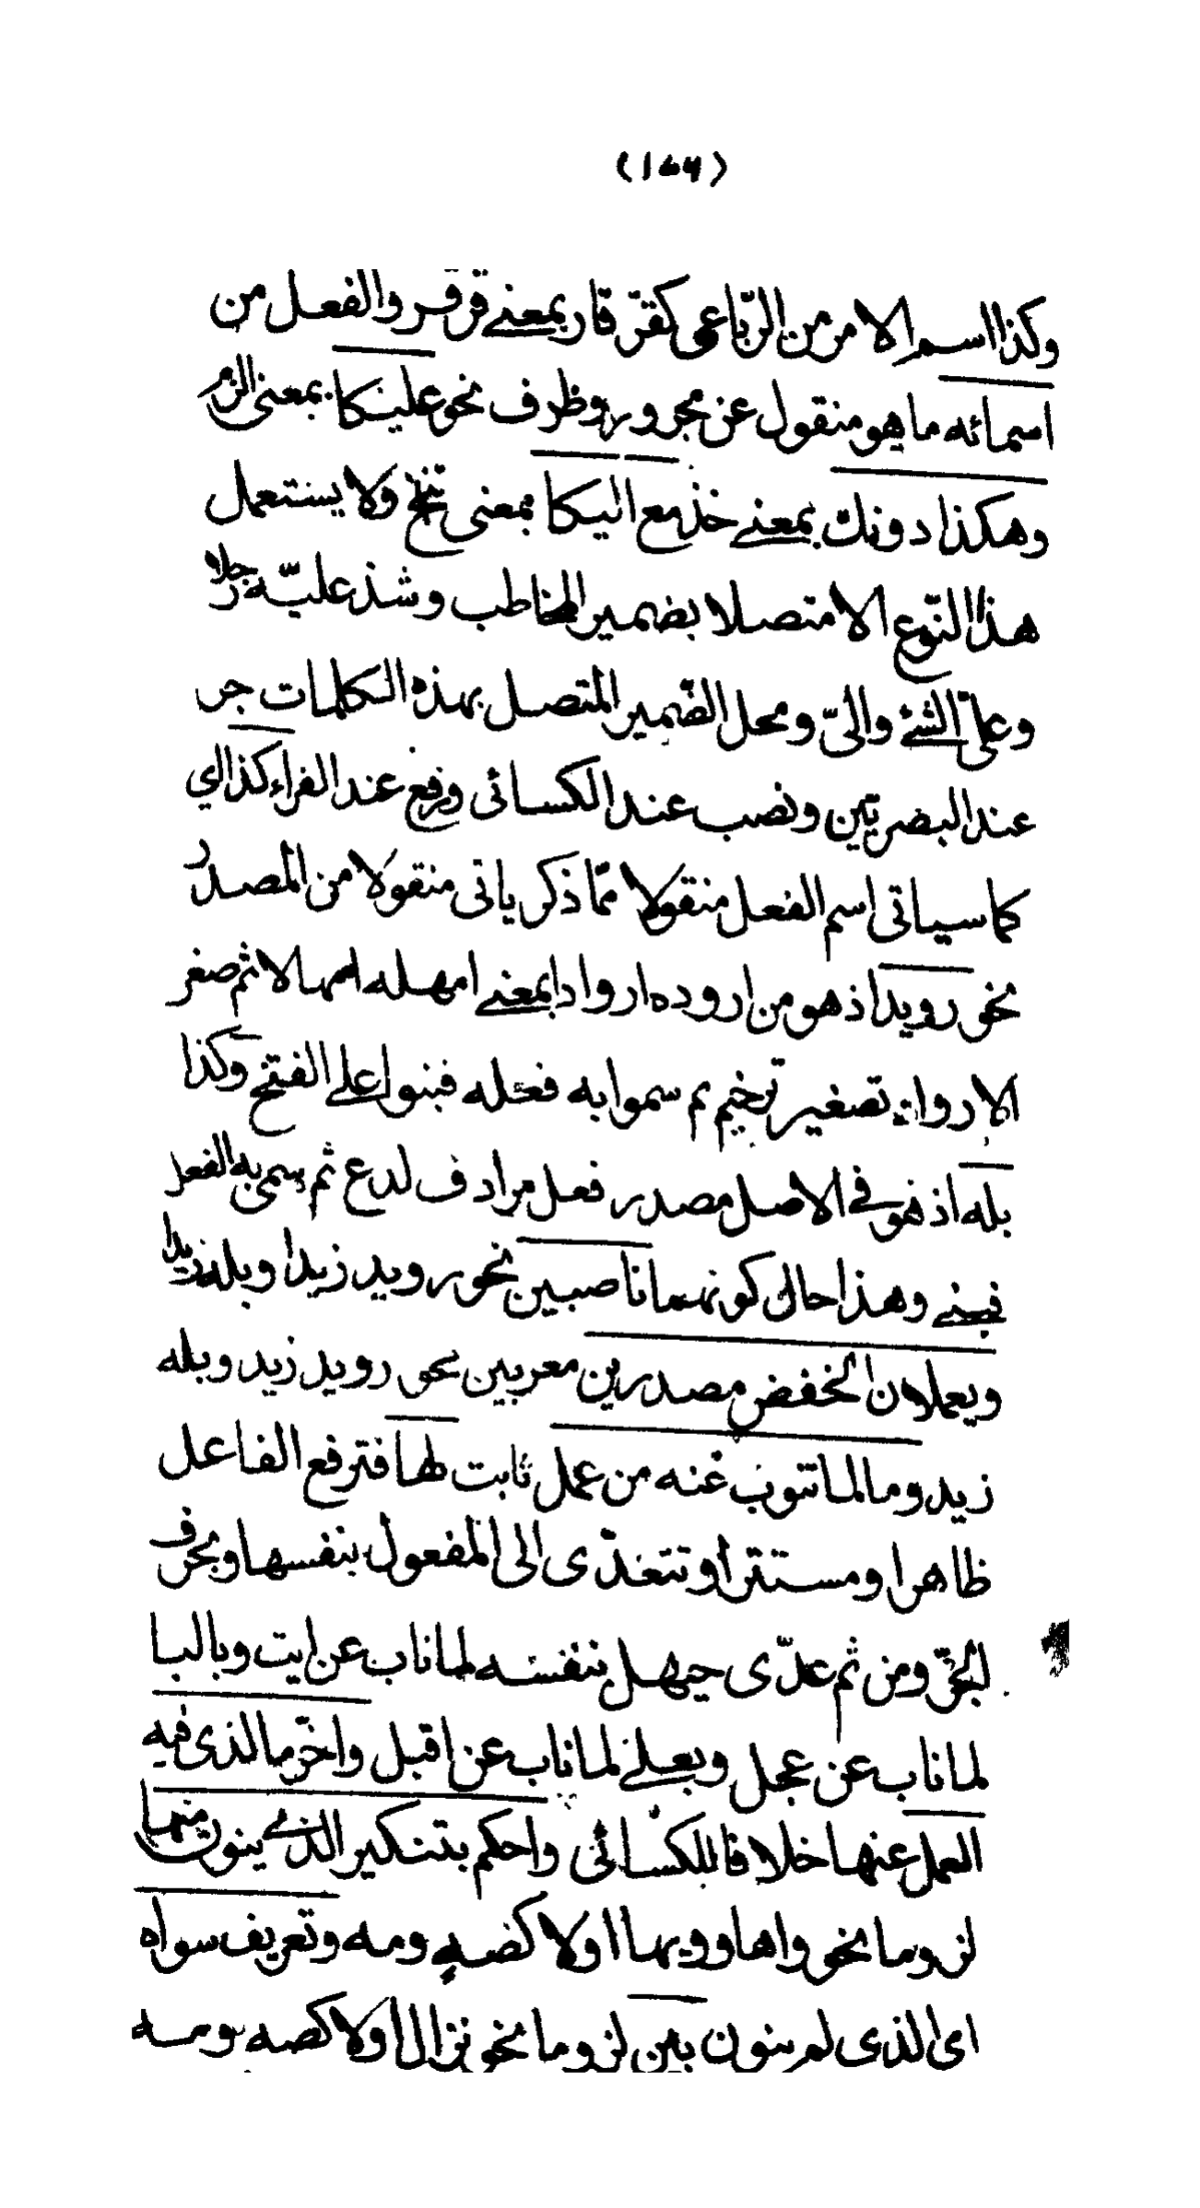 (۱۶۹)
وكذا اسم الامر من الرّباعى كقرّقار بمعنے قرقر والفعل من
اسمائه ماهو منقول عن مجرور وظرف نحو عليكا بمعنى الزم
وهكذا دونك بمعنے خذ مع اليكا بمعنى تنحّ ولا يستعمل
هذا النّوع الا متصلا بضمير المخاطب وشذ عليّه رجلا
وعلىّ الشئ والىّ ومحل الضّمير المتصل بهذه الكلمات جر
عند البصريين ونصب عند الكسائى ورفع عند الفراء كذا اى
كما سياتى اسم الفعل منقولا ممّا ذكر ياتى منقولا من المصدر
نحو رويدا اذ هو من اروده اروادا بمعنے امهله امهالا ثم صغر
الارواد تصغير ترخيم ثم سموا به فعله فبنوا علے الفتح وكذا
بله اذ هو فے الاصل مصدر فعل مرادف لدع ثم سمى به الفعل
فبنے وهذا حال كونهما ناصبين نحو رويد زيدا وبله زيدا
ويعملان الخفض مصدرين معربين نحو رويد زيد وبله
زيد وما لما تنوب عنه من عمل ثابت لها فترفع الفاعل
ظاهرا ومستترا وتتعدّى الى المفعول بنفسها وبحرف
الجرّ ومن ثم عدّى حيهل بنفسه لما ناب عن ايت وبالبا
لما ناب عن عجل وبعلے لما ناب عن اقبل واخّر ما لذى فيه
العمل عنها خلافا للكسائى واحكم بتنكير الذے ينون منها
لزوما نحو واها وويها اولا كصه ومه وتعريف سواه
اى الذى لم ينون بين لزوما نحو نزال اولا كصه ومه